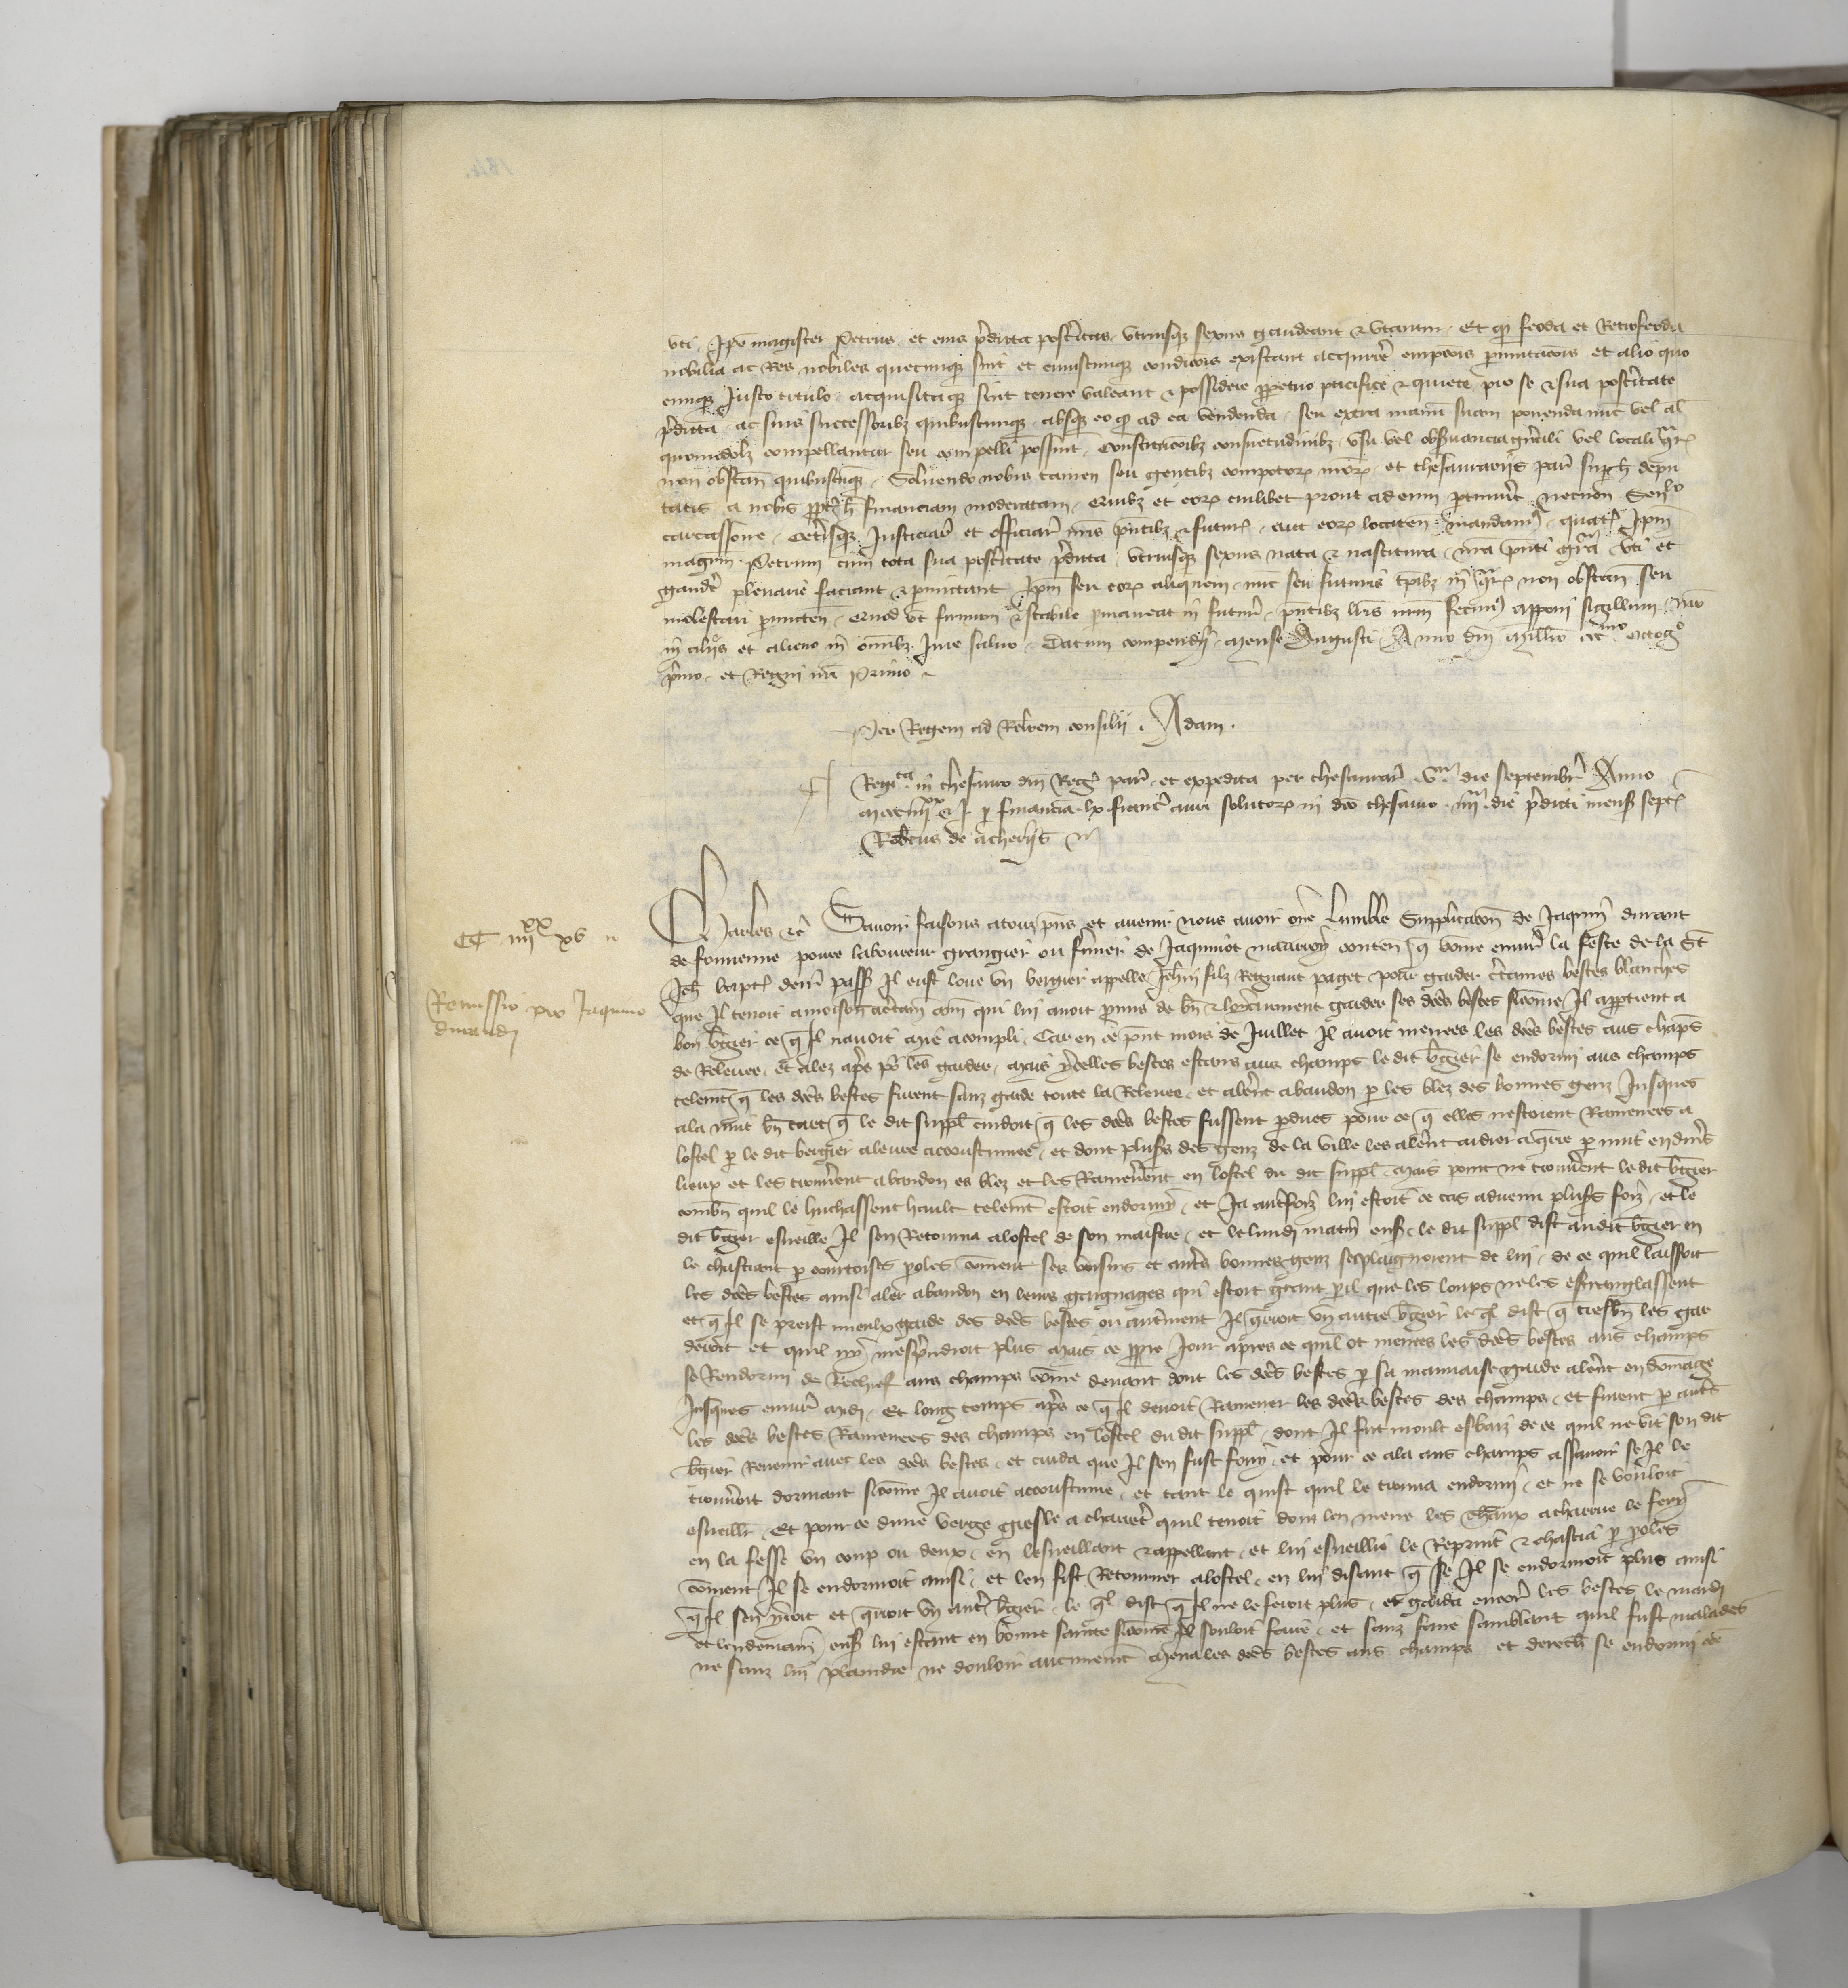 uti. Ipse magister Petrus et eius pdicta postitas utriusq sexus gaudeant & utantur. Et q feoda et Retrofeoda
nobilia ac Res nobiles quecunq sint et cuiuscunq condicois existant acquirere empcois pmutacois et alio quo
cunq Justo titulo acquisitaq sint tenere valeant & possidere ppetuo pacifice & quiete pro se & sua postitate
pdicta ac suis successoribz quibuscunq absq eo q ad ea vendenda seu extra manu suam ponenda nuc vel al
quomodolz compellantur seu compelli possint Constitucoibz consuetudinibz usu vel obsuancia gnali vel locali
non obstan quibuscuq. Solvendo nobis tamen seu gentibz compotor nror et thesaurariis par sup h depu
tatis a nobis ppt h financiam moderatam. Quibz et eor cuilibet prout ad eum ptinuit necnon Sen
carcassone. Cetisq Justiciar et officiar nris pntibz & futur aut eor locaten mandam quat Ipm
magrm Petrum cum tota sua postitate pdicta utriusq sexus nata & nascitura nra pnti gra uti et
gaude plenarie faciant & pmittant Ipm seu eor aliquem nuc seu futuris tpibz in non obstan seu
molestari pmitten. Quod ut firmum & stabile pmaneat in futur pntibz lris nrm fecim apponi sigillum. Nro
in aliis et alieno in omibz Jure salvo. Datum compendii mense Augusti. Anno dni millio CCCmo octogo
pmo. et Regni nri Primo
Per Regem ad Relcoem consilii. Adam.
Regta in thesauro dni Reg par et expedita per thesaurar Vta die septembr Anno
MCCCIIIIxx & I p financia lx franc auri solutor in dco thesauro IIIIta die pdicti mens sept
Robtus de acheriis
CC IIIIxx XV
Remissio pro Jaquino
durandi
Charles &c Savoir faisons a touz pns et avenir nous avoir oye lumble Supplicacion de Jaquin durant
de povre laboureur grangier ou fmier de Jaquinot conten q come envir la feste de la St
Jeh bapt denr passe Il eust loue un bergier appelle Jehnin filz Regnaut paget pour garder ctaines bestes blanches
que Il tenoit a moison qui lui avoit pmis de bn & loyaument garder ses dces bestes sicome Il apptient a
bon bgier ce q Il navoit mie acompli. Car en ce pnt mois de Juillet Il avoit menees les dces bestes aus champs
de Relevee. Et alez aps po les garder. mais ycelles bestes estans aux champs le dit bgier se endormi aus champs
telemt q les dces bestes furent sanz garde toute la Relevee et alerent a bandon p les blez des bonnes genz Jusques
a la nuit bn tart q le dit suppl cuidoit q les dces bestes fussent pdues pour ce q elles nestoient Ramenees a
lostel p le dit bergier a leure accoustumee. et dont plusrs des genz de la ville les alerent aidier a querre p nuit en divs
lieux et les trouvent a bandon es blez et les Ramenerent en lostel du dit suppl. Mais point ne trouvent le dit bgier
combn quil le huchassent hault telemt estoit endormy. et Ja autrefoiz lui estoit ce cas advenu plusrs foiz. et le
dit bgier esveille Il sen Retourna a lostel de son maistre. et le lundi matin ens le dit suppl dist au dit bgier en
le chastiant p courtoises poles coment ses voisins et autres bonnes genz se plaignoient de lui. de ce quil laissoit
les dces bestes ainsi aler a bandon en leurs gaignages qui estoit grant pil que les loups ne les estranglassent
et q Il se preist mieulx garde des dces bestes ou autrement Il querroit un autre bgier leql dist q tresbn les gar
deroit et quil ny mesprendroit plus mais ce ppre Jour apres ce quil ot menees les dces bestes aus champs
se Rendormi de Rechief aus champs come devant dont les dces bestes p sa mauvaise garde alerent en domage
Jusques envir midi. Et long temps aps ce q Il devoit Ramener les dces bestes des champs. et furent p autres
les dces bestes Ramenees des champs en lostel du dit suppl. dont Il fut moult esbahi de ce quil ne vit son dit
bgier Revenir avec les dces bestes. et cuida que Il sen fust fouy. et pour ce ala aus champs assavoir se Il le
trouvoit dormant sicome Il avoit accoustume. et tant le quist quil le trouva endormi. et ne se vouloit
esveillr. Et pour ce dune verge gresle a charret quil tenoit dont len mene les chevaux a charrue le fery
en la fesse un coup ou deux en lesveillant & appellant. et lui esveillie le Reprint & chastia p poles
coment Il se endormoit ainsi. et len fist Retourner a lostel en lui disant q se Il se endormoit plus ainsi
q Il sen yroit et querroit un autre bgier. le ql dist q Il ne le feroit plus. et garda encor les bestes le mardi
et lendemain ens lui estant en bonne sante sicome Il souloit faire. et sanz faire samblant quil fust malades
ne sanz lui plaindre ne douloir aucunemt mena les dces bestes aus champs et derech se endormi